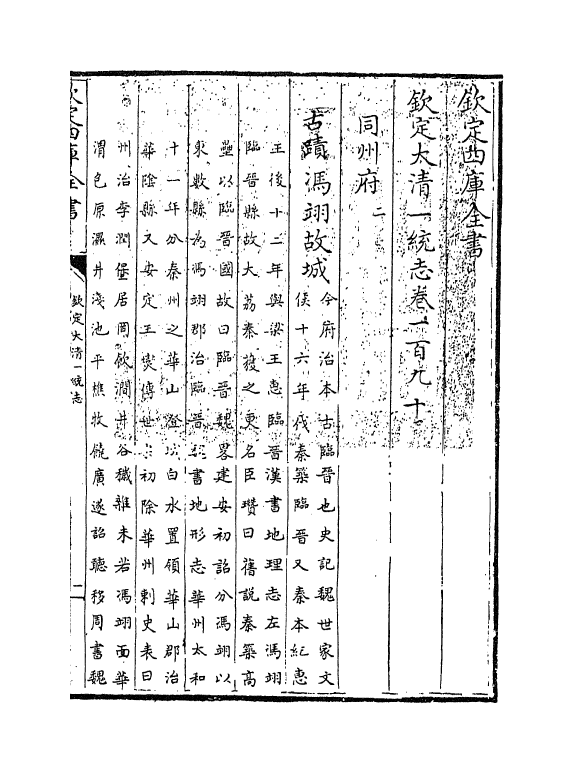 欽定四庫全書
欽定大清一統志卷一百九十
同州府二
古蹟馮翊故城
今府治本古臨晉也史記魏世家文
侯十六年伐秦築臨晉又秦本紀惠
王後十二年與梁王惠臨晉漢書地理志左馮翊
臨晉縣故大荔秦獲之更名臣瓚曰舊說秦築高
壘以臨晉國故曰臨晉魏畧建安初詔分馮翊以
東數縣為馮翊郡治臨晉魏書地形志華州太和
十一年分秦州之華山澄城白水置領華山郡治
華陰縣又安定王燮傳世宗初除華州刺史表曰
州治李潤堡居岡飲澗井谷穢雜未若馮翊面華
渭包原濕井淺池平樵牧饒廣遂詔聽移周書魏
欽定四庫全書
欽定大清一統志